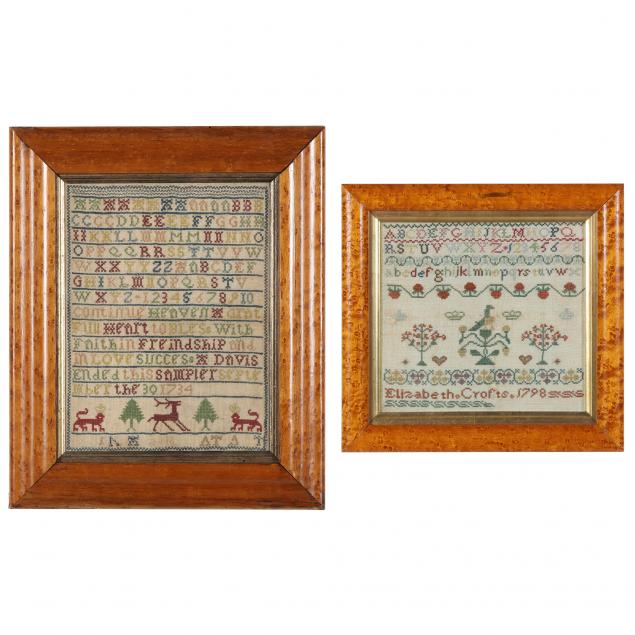 CCCCDDEEEEFFGGHH
OPPQQRRSSTTUVW
WXXYYZZABCDEF
GHIKLMNOPQRSTV
WXYZ12345678910
Continue Heaven A Grat
Full Heart to Bless With
Faith in Freindship and
in Love Success A Davis
ended this sampler sept
mber the 30 1734
ABCDEFGHIJKLMNOPQ
RSTUVWXYZ12345678
abcdefghijklmnopqrstuvwx
Elizabeth Crofts 1798